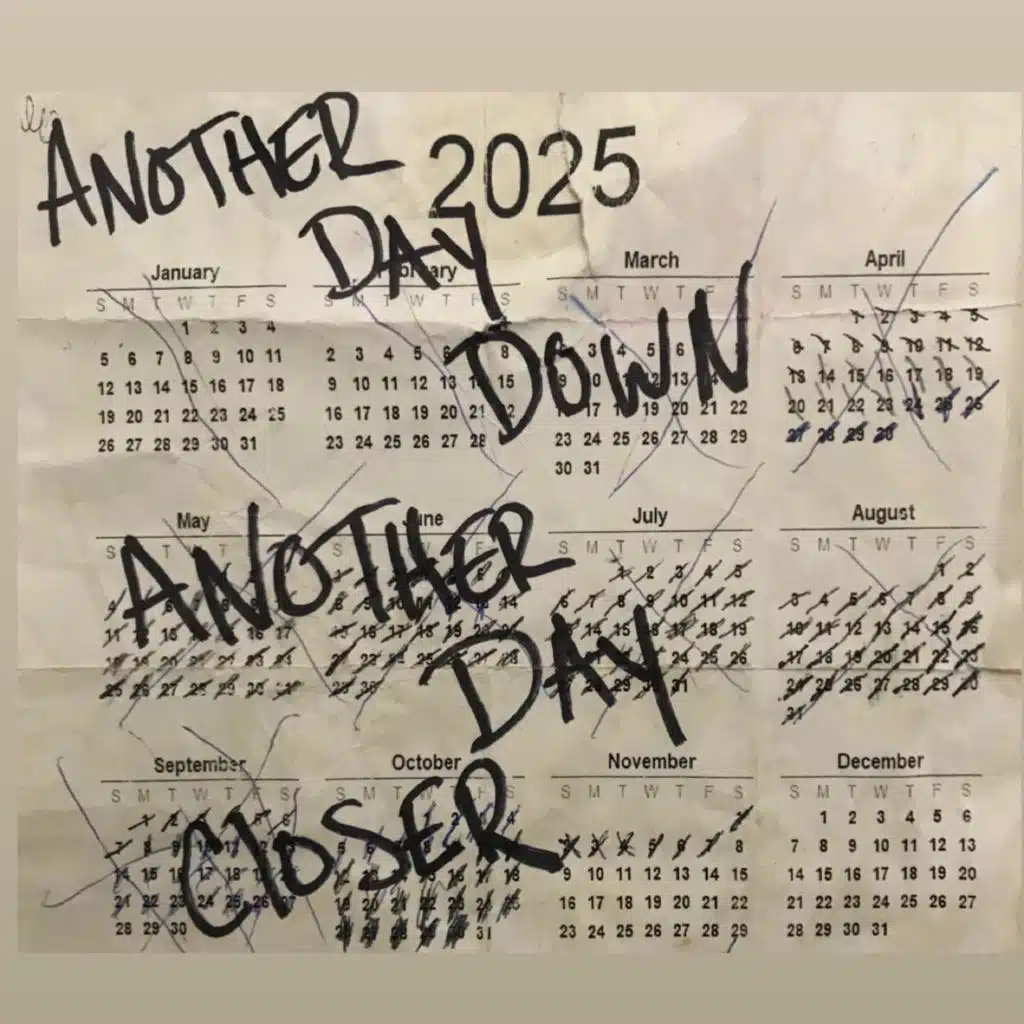 ANOTHER
DAY
DOWN
2025
January
S M T W T F S
1 2 3 4
5 6 7 8 9 10 11
12 13 14 15 16 17 18
19 20 21 22 23 24 25
26 27 28 29 30 31
February
S M T W T F S
2 3 4 5 6 8
9 10 11 12 13 14 15
16 17 18 19 20 21 22
23 24 25 26 27 28
March
S M T W T F S
3 4 5 6
9 10 11 12 13 14
17 18 19 20 21 22
23 24 25 26 27 28 29
30 31
April
S M T W T F S
1 2 3 4 5
6 7 8 9 10 11 12
13 14 15 16 17 18 19
20 21 22 23 24 25 26
27 28 29 30
ANOTHER
DAY
CLOSER
May
S T W T
4 6
11 12 13 16 17
18 19 20 21 22 23 24
25 26 27 28 29 30 31
June
8 9 10 11 12 13 14
15 16 17 18 19 20 21
22 24 25 27 28
29 30
July
S M T W T F S
1 2 3 4 5
6 7 8 9 10 11 12
14 15 16 17 18 19
24 25 26
28 29 30 31
August
S M T W T F S
1 2
3 4 5 6 7 8 9
10 11 12 13 14 15 16
17 18 19 20 21 22 23
24 25 26 27 28 29 30
31
September
S M T W T F S
1 2 3 5 6
7 8 9 10 11 12
14 15 16 17 18 19 20
21 22 23 24 25 26 27
28 29 30
October
S M T W T F S
1 2 3 4
5 6
12 13 15 16 17 18
19 20 21 22 23 24 25
26 27 28 29 30 31
November
S M T W T F S
1
2 3 4 5 6 7 8
9 10 11 12 13 14 15
16 17 18 19 20 21 22
23 24 25 26 27 28 29
December
S M T W T F S
1 2 3 4 5 6
7 8 9 10 11 12 13
14 15 16 17 18 19 20
21 22 23 24 25 26 27
28 29 30 31